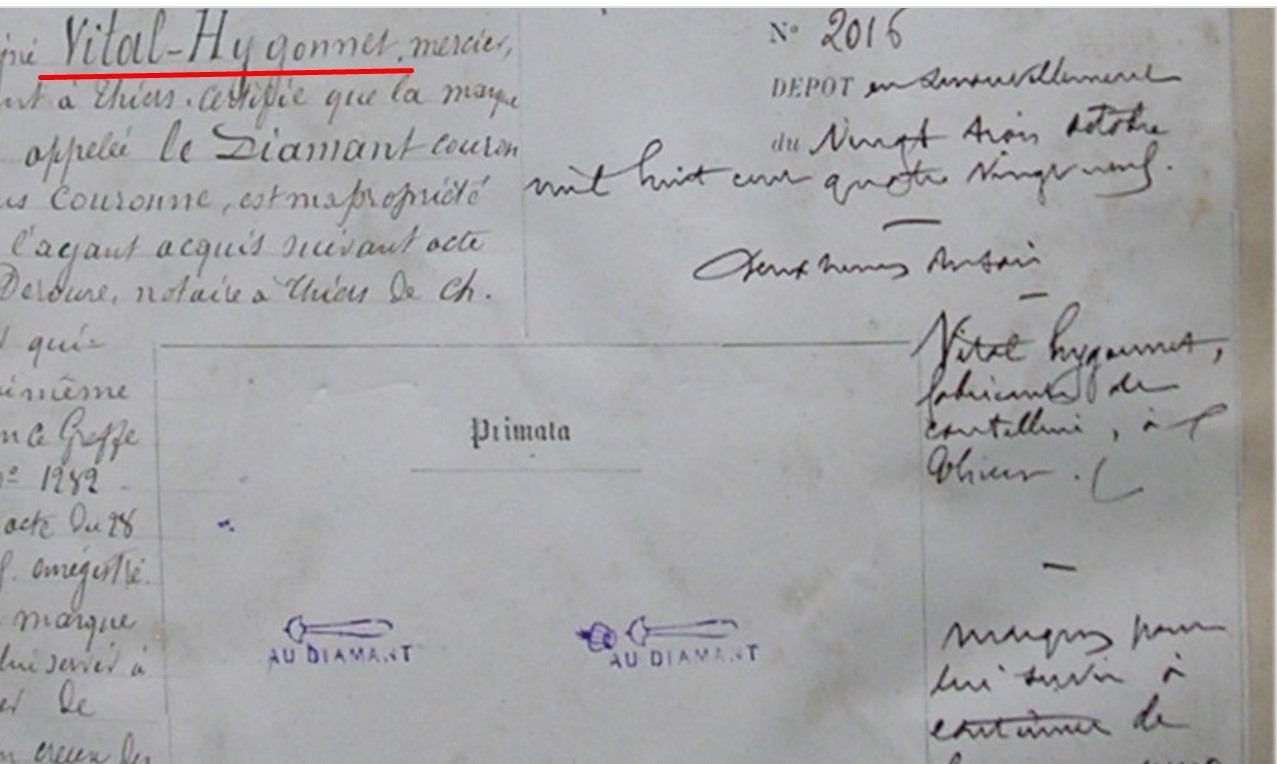 Vital-Hygonnet, mercier,
à Thiers. Certifie que la marque
appelée le Diamant couron
Couronne, est ma propriété
l'ayant acquis suivant acte
notaire à Thiers de Ch.
qui-
même
ce Greffe
n° 1989
acte du 28
enregistré.
marque
lui servir à
de
creux des
N° 2016
DEPOT en renouvellement
du Vingt trois octobre
mil huit cent quatre vingt neuf.
Deux heures du soir
Vital hygonnet,
fabricant de
coutellerie, à
Thiers.
Primata
AU DIAMANT
AU DIAMANT
marques pour
lui servir à
de